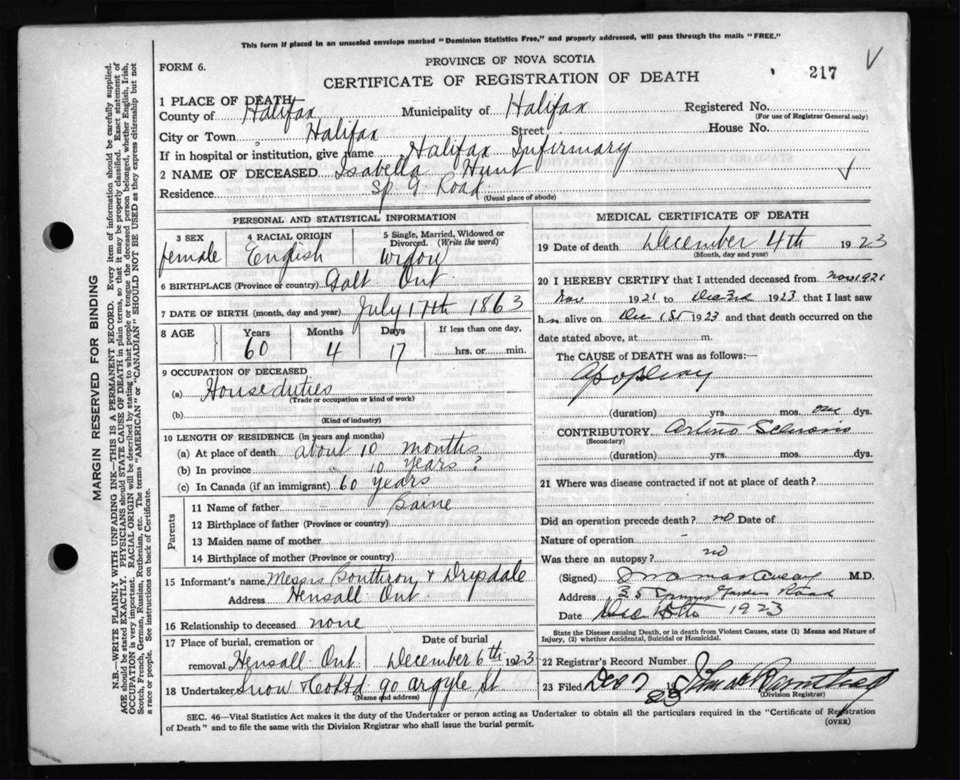 This form if placed in an unsealed envelope marked "Dominion Statistics Free," and properly addressed, will pass through the mails "FREE."
FORM 6.
PROVINCE OF NOVA SCOTIA
CERTIFICATE OF REGISTRATION OF DEATH
217
1 PLACE OF DEATH
County of Halifax Municipality of Halifax Registered No.
(For use of Registrar General only)
City or Town Halifax Street House No.
If in hospital or institution, give name Halifax Infirmary
2 NAME OF DECEASED Isabella Hunt
Residence Sp G Road (Usual place of abode)
PERSONAL AND STATISTICAL INFORMATION
3 SEX female
4 RACIAL ORIGIN English
5 Single, Married, Widowed or Divorced. (Write the word) Widow
6 BIRTHPLACE (Province or country) Galt Ont
7 DATE OF BIRTH (month, day and year) July 17th 1863
8 AGE Years Months Days If less than one day,
60 4 17 hrs. or min.
9 OCCUPATION OF DECEASED
(a) House duties
(Trade or occupation or kind of work)
(b)
(Kind of industry)
10 LENGTH OF RESIDENCE (in years and months)
(a) At place of death about 10 months
(b) In province 10 years?
(c) In Canada (if an immigrant) 60 years
Parents
11 Name of father
12 Birthplace of father (Province or country)
13 Maiden name of mother
14 Birthplace of mother (Province or country)
15 Informant's name Messrs & Drysdale
Address Hensall Ont
16 Relationship to deceased none
17 Place of burial, cremation or removal Hensall Ont
Date of burial December 6th 1923
18 Undertaker Snow & Co Ltd 90 Argyle St
(Name and address)
MEDICAL CERTIFICATE OF DEATH
19 Date of death December 4th 1923
(Month, day and year)
20 I HEREBY CERTIFY that I attended deceased from Nov 1921
Nov 1921 to Dec 1923 that I last saw
h alive on Dec 1st 1923 and that death occurred on the
date stated above, at m.
The CAUSE OF DEATH was as follows:
Apoplexy
(duration) yrs. mos. one dys.
CONTRIBUTORY Arterio Sclerosis
(Secondary)
(duration) yrs. mos. dys.
21 Where was disease contracted if not at place of death?
Did an operation precede death? no Date of
Nature of operation
Was there an autopsy? no
(Signed) M.D.
Address 35 Spring Garden Road
Date Dec 1923
State the Disease causing Death, or in death from Violent Causes, state (1) Means and Nature of Injury, (2) whether Accidental, Suicidal or Homicidal.
22 Registrar's Record Number
23 Filed Dec 7 23
(Division Registrar)
SEC. 46—Vital Statistics Act makes it the duty of the Undertaker or person acting as Undertaker to obtain all the particulars required in the "Certificate of Registration
of Death" and to file the same with the Division Registrar who shall issue the burial permit.
(OVER)
MARGIN RESERVED FOR BINDING
N.B.—WRITE PLAINLY WITH UNFADING INK—THIS IS A PERMANENT RECORD. Every item of information should be carefully supplied.
AGE should be stated EXACTLY. PHYSICIANS should STATE CAUSE OF DEATH in plain terms, so that it may be properly classified. Exact statement of
OCCUPATION is very important. RACIAL ORIGIN will be described by stating to what people or tongue the deceased person belonged, whether English, Irish,
Scotch, French, German, Russian, Ruthenian, etc. The terms "AMERICAN" or "CANADIAN" SHOULD NOT BE USED as they express citizenship but not
a race or people. See instructions on back of Certificate.